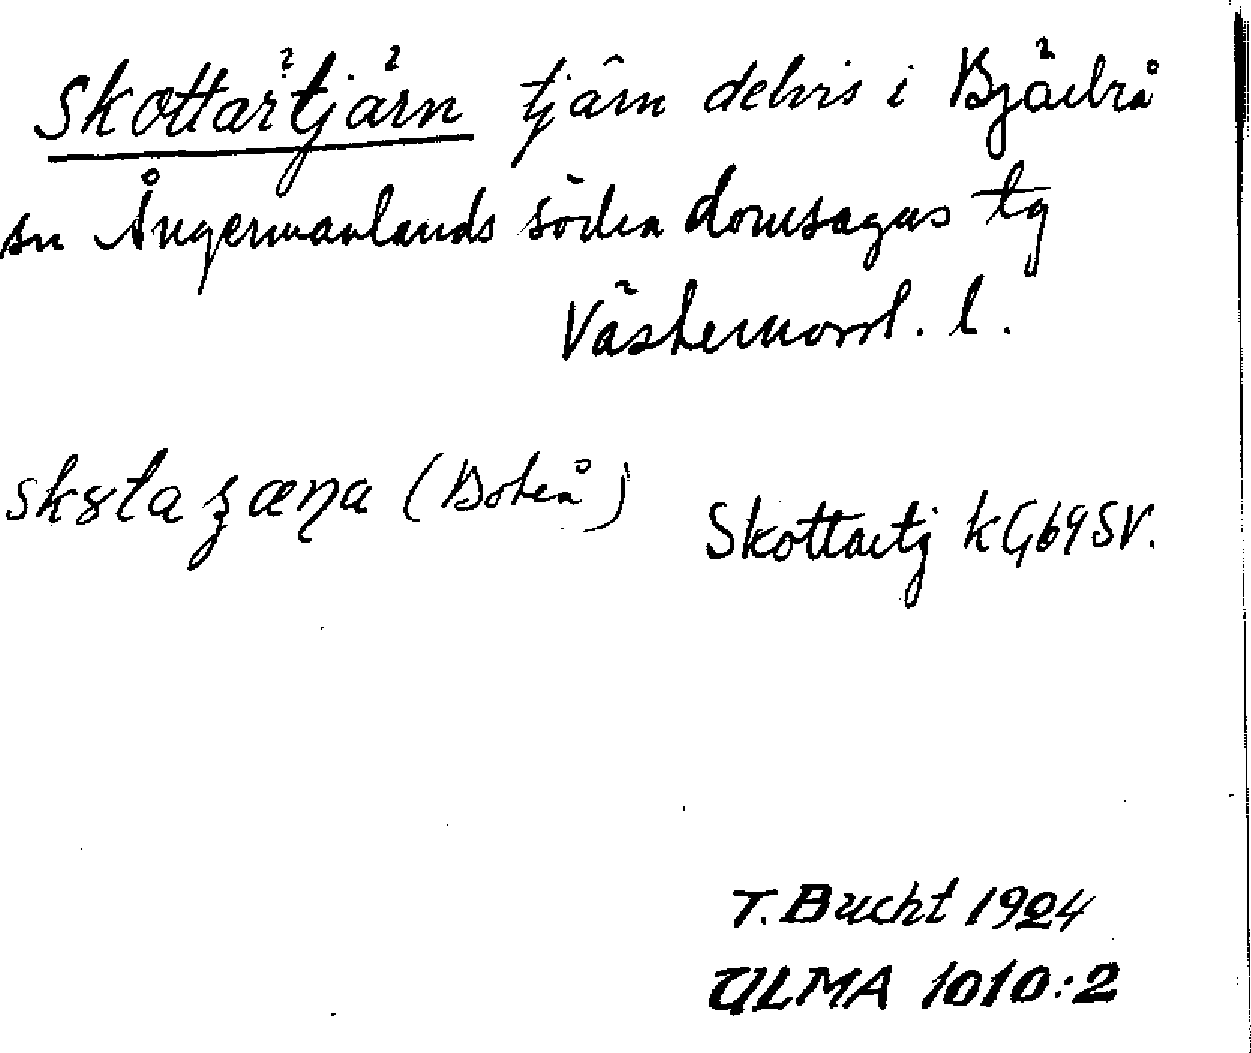 Skottartjärn tjärn delvis i Bjärtrå
sn Ångermanlands södra domsagas tg
Västernorrl. l.
(Boteå)
Skottartj kG69SV.
T. Bucht 1924
ULMA 1010:2